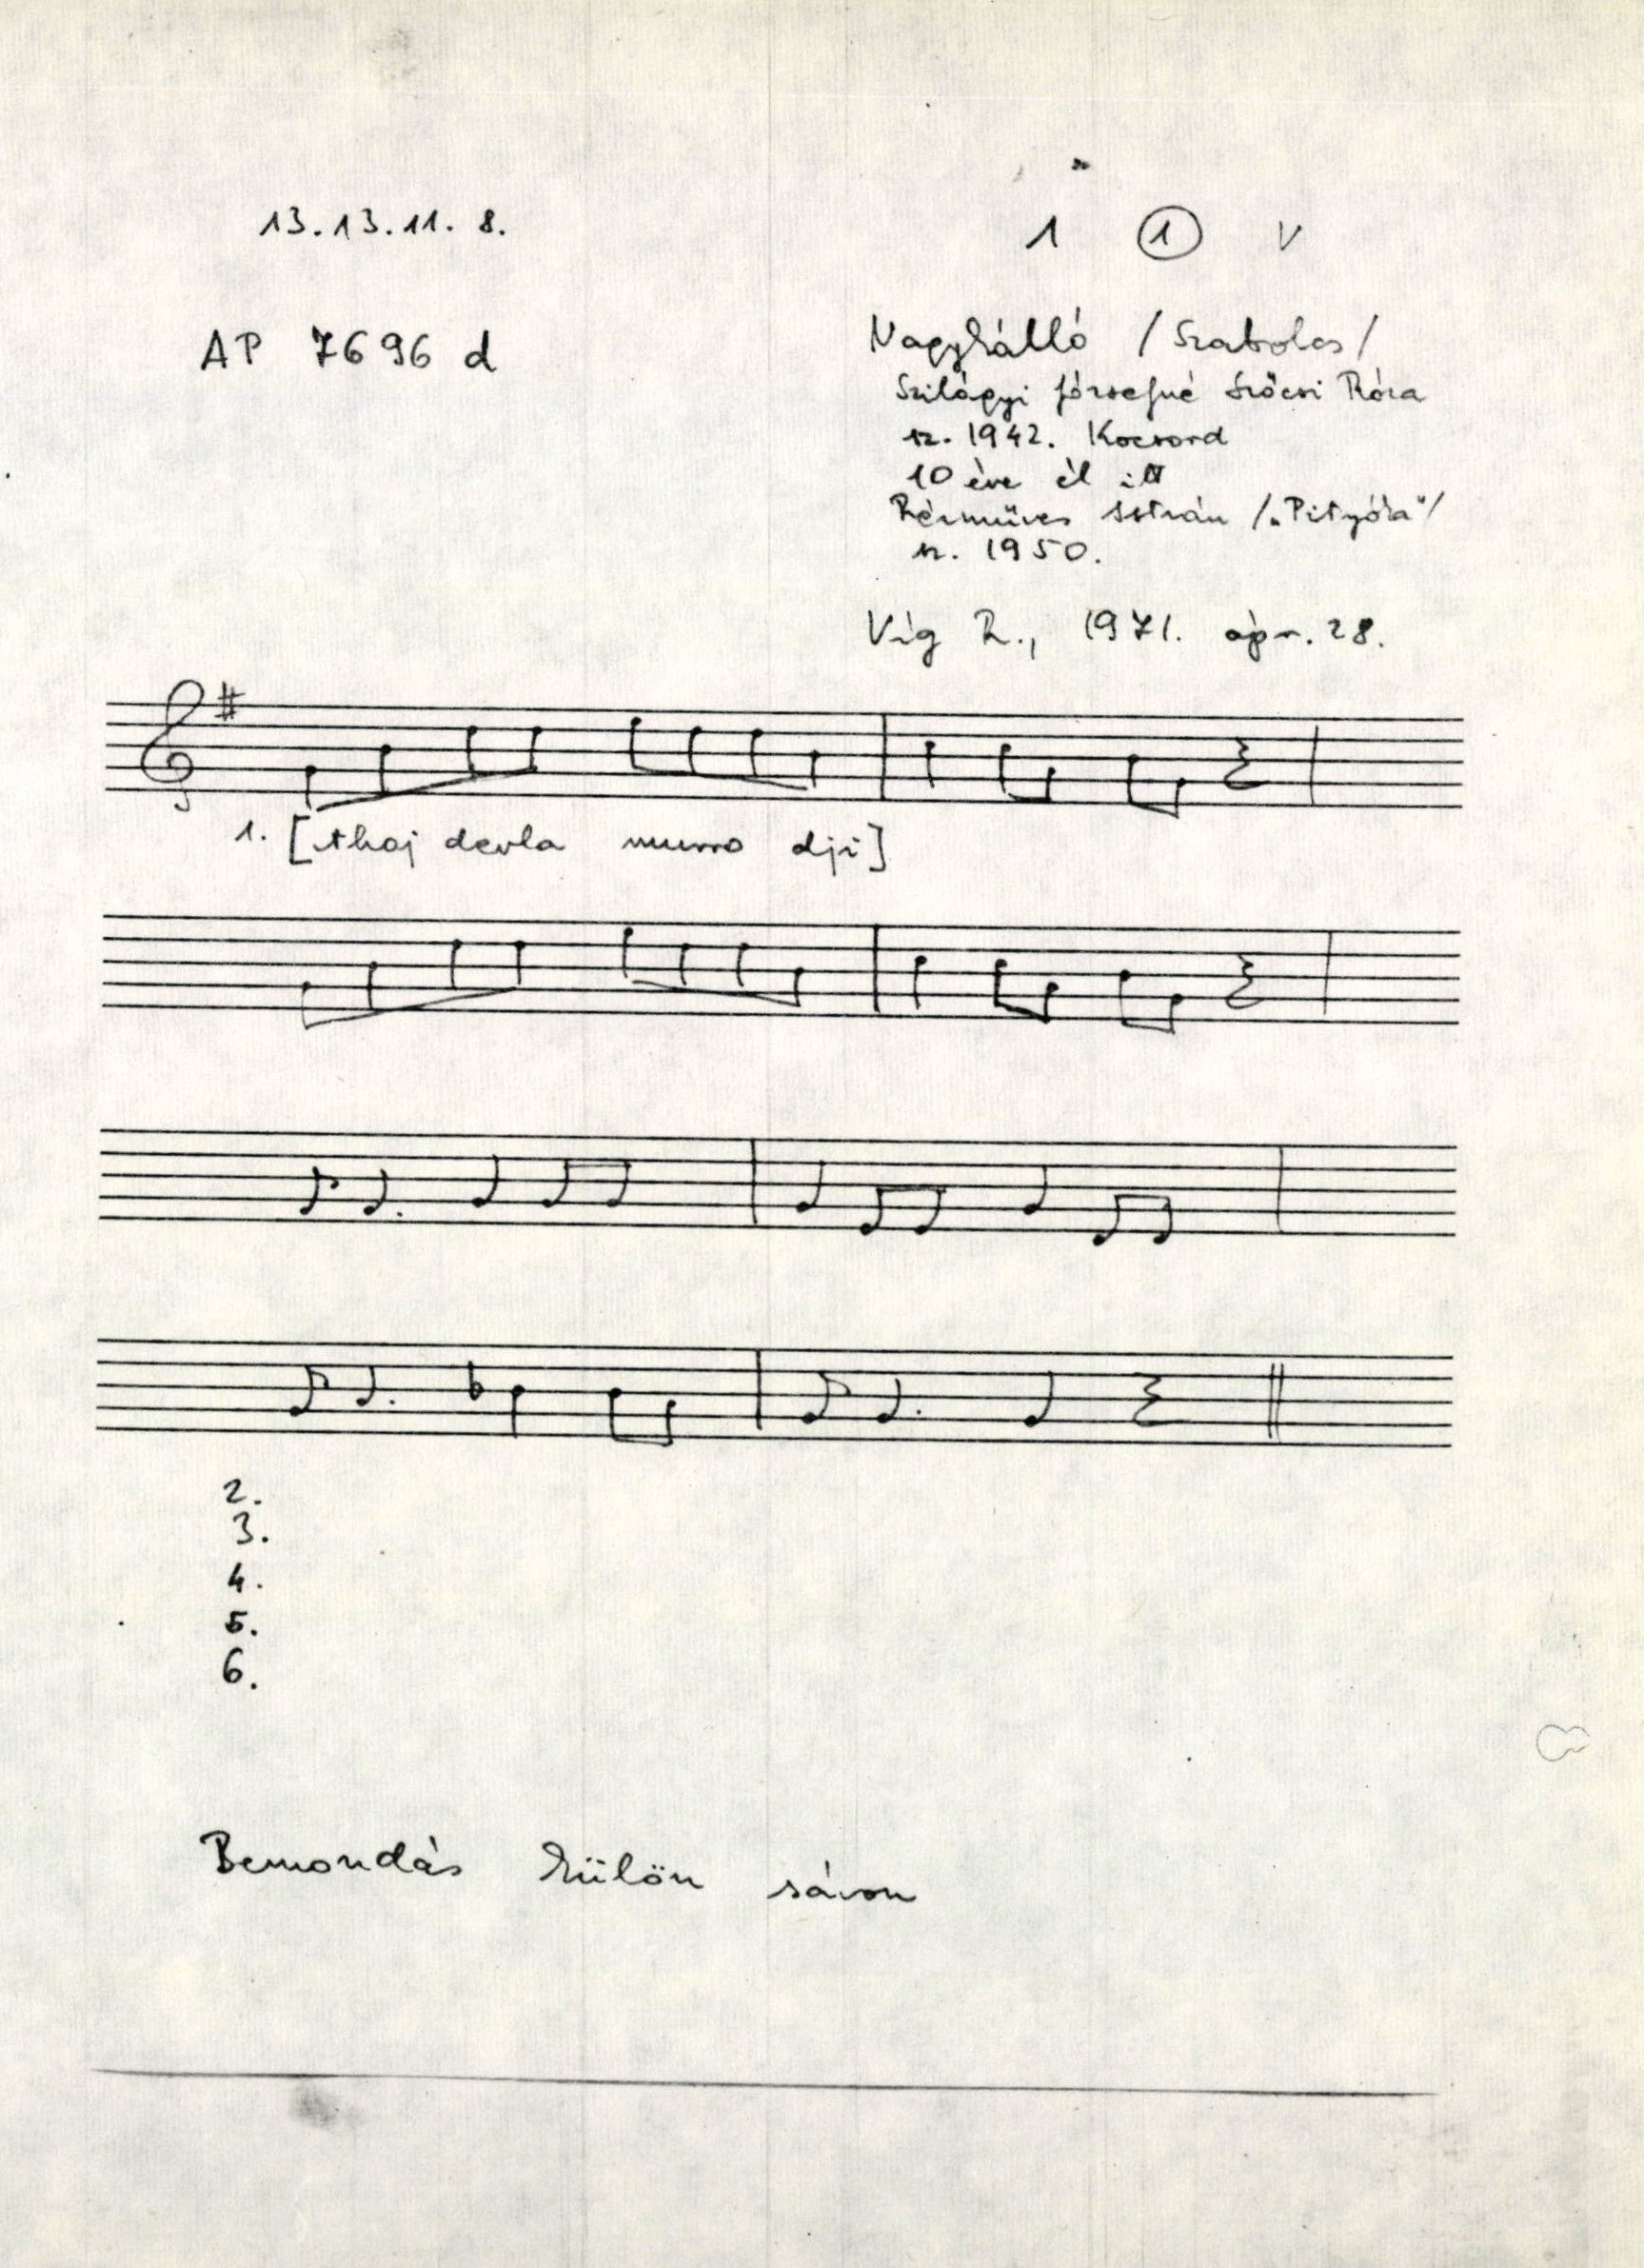 13.13.11. 8.
1 ① V
AP 7696 d
Nagykálló /Szabolcs/
Szilágyi Józsefné Szőcsi Róza
sz. 1942. Kocsord
10 éve él itt
Rézműves István /„Pityóka"/
sz. 1950.
Víg R., 1971. ápr. 28.
1. [thaj devla murro dji]
2.
3.
4.
5.
6.
Bemondás külön sávon